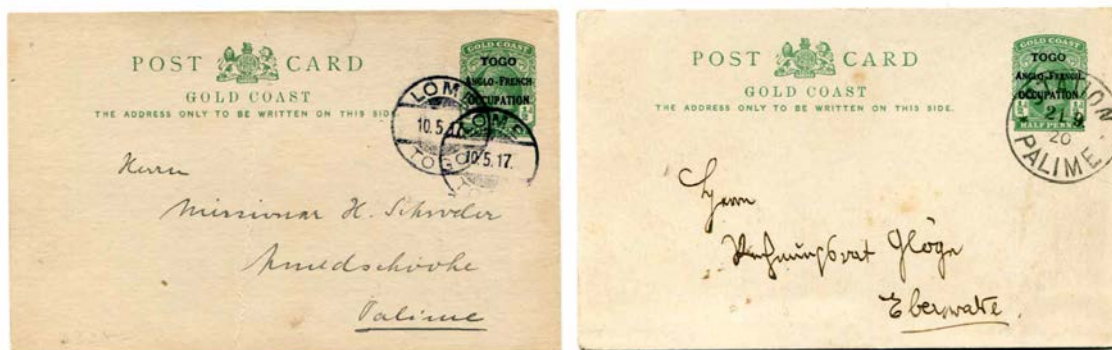 POST CARD
GOLD COAST
THE ADDRESS ONLY TO BE WRITTEN ON THIS SIDE.
GOLD COAST
TOGO
ANGLO-FRENCH
OCCUPATION
LOME
10.5.17.
TOGO
LOME
10.5.17.
Herrn
Missionar H. Schröder
Palime
POST CARD
GOLD COAST
THE ADDRESS ONLY TO BE WRITTEN ON THIS SIDE.
GOLD COAST
TOGO
ANGLO-FRENCH
OCCUPATION
HALF PENNY
STATION
21 9
20
PALIME
Herrn
Rechnungsrat Glöge